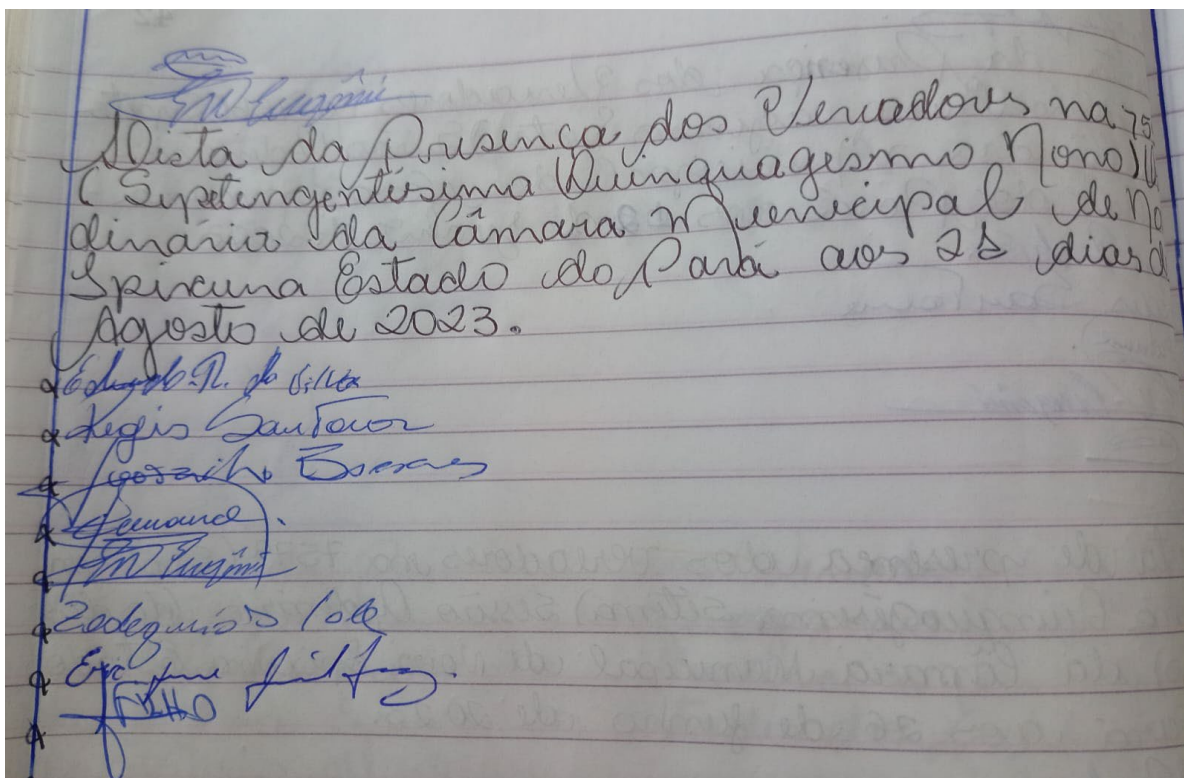 Eugênio
Lista da Presença dos Vereadores na 75
(Septingentésima Quinquagésmo Nono)
dinária da Câmara Municipal de No
Ipixuna Estado do Pará aos 28 dias d
Agosto de 2023.
Eduardo R. da Silva
Regis Santana
Soares
Fernanda
Eugênio
Zedequias
FILHO